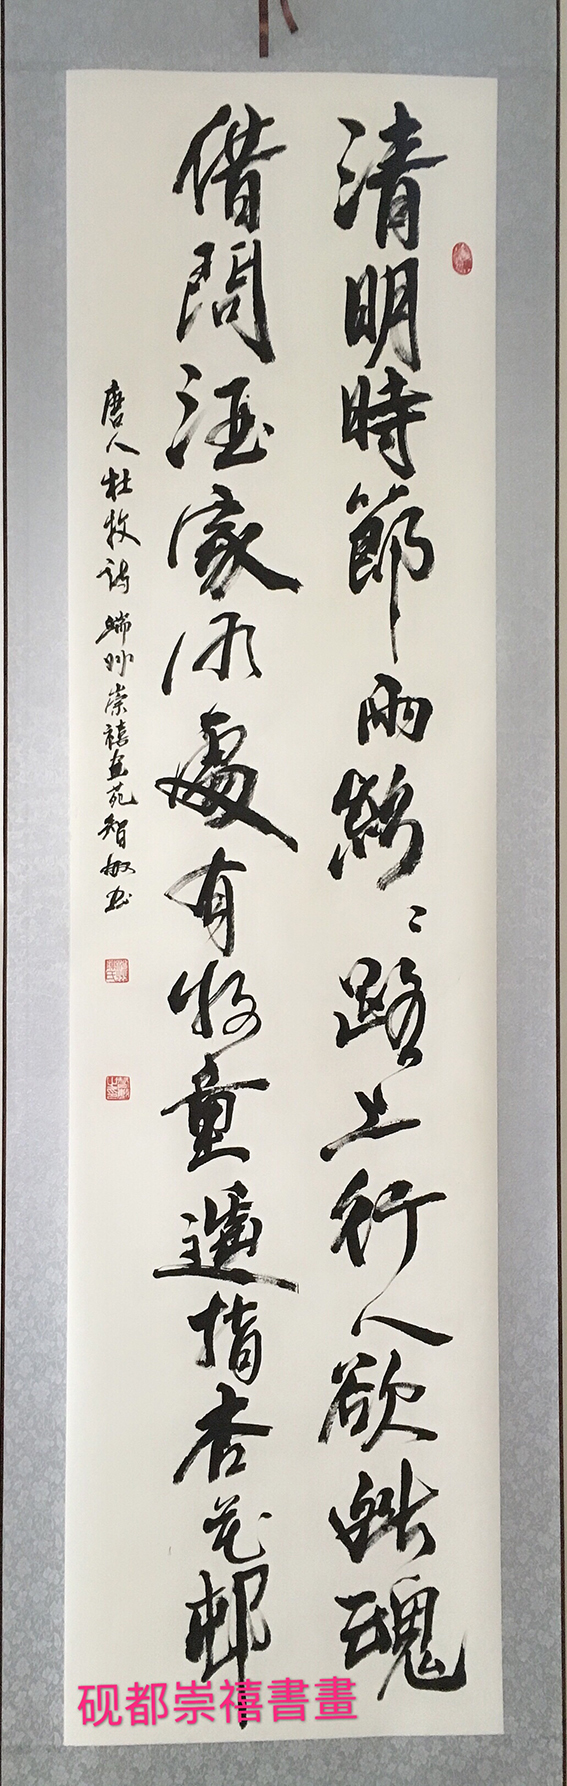 清明時節雨紛〻路上行人欲斷魂
借問酒家何處有牧童遥指杏花邨
唐人杜牧詩 端州崇禧畫苑智敏書
砚都崇禧書畫